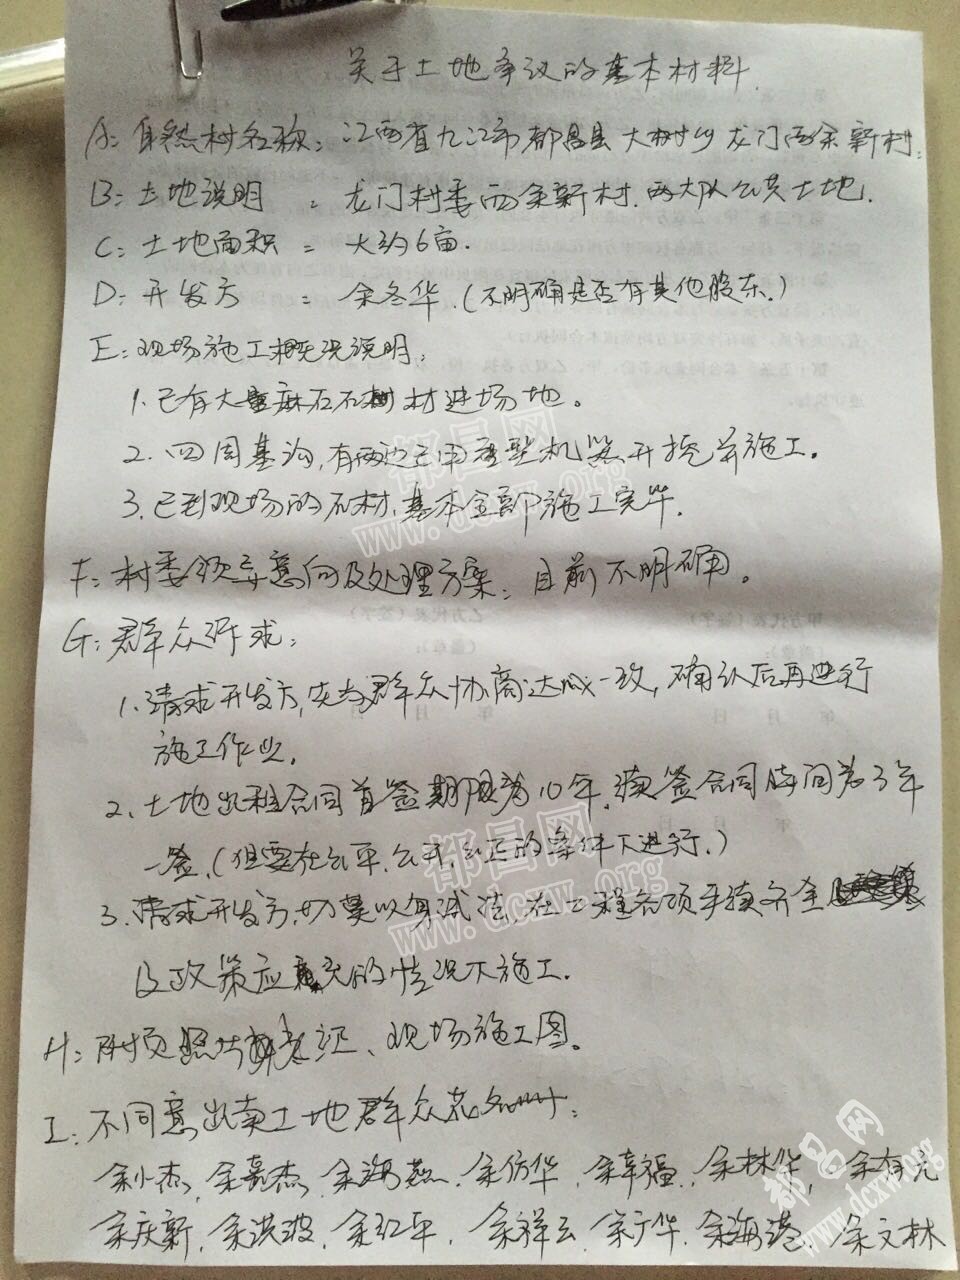 关于土地争议的基本材料
A: 自然村名称: 江西省九江市都昌县大树乡龙门西余新村.
B: 土地说明: 龙门村委西余新村.两大队公共土地.
C: 土地面积: 大约6亩.
D: 开发方: 余冬华.(不明确是否有其他股东.)
E: 现场施工概况说明:
1.已有大量麻石石材进场地。
2.四周基沟,有两边已用重型机器开挖并施工。
3.已到现场的石材,基本全部施工完毕.
F: 村委领导意向及处理方案: 目前不明确。
G: 群众诉求:
1.请求开发方,先与群众协商达成一致,确认后再进行
施工作业.
2.土地出租合同首签期限为10年.续签合同时间为3年
一签.(但要在公平.公开.公正的条件下进行.)
3.请求开发方,切莫以身试法,在工程各项手续齐全
及政策应允的情况下施工.
H: 附页照片、现场施工图。
I: 不同意出卖土地群众花名册:
余小杰,余嘉杰,余海燕,余仿华,余幸福,余林华,余有元
余庆新,余洪波,余红平,余祥云,余广华,余海港,余文林
都昌网
www.dcxw.org
都昌网
www.dcxw.org
都昌网
www.dcxw.org
乙方代表(签字)
甲方代表(签字)
年 月 日
年 月 日